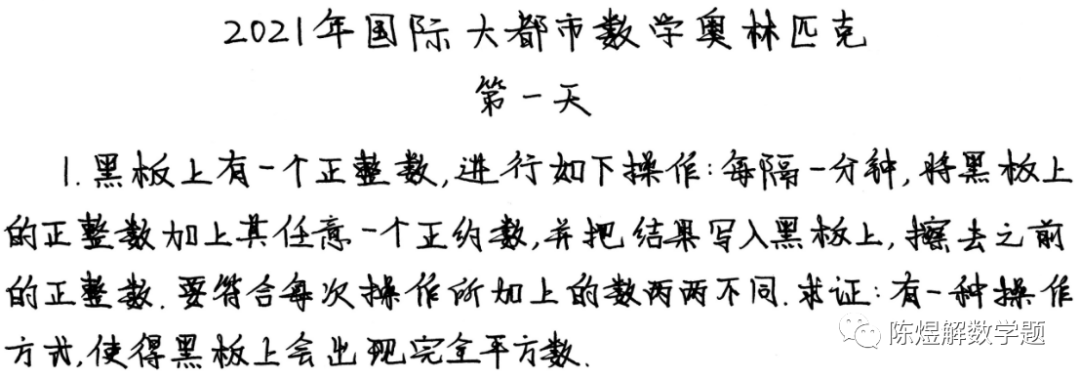 2021年国际大都市数学奥林匹克
第一天
1.黑板上有一个正整数,进行如下操作:每隔一分钟,将黑板上
的正整数加上其任意一个正约数,并把结果写入黑板上,擦去之前
的正整数.要符合每次操作所加上的数两两不同.求证:有一种操作
方式,使得黑板上会出现完全平方数.
陈煜解数学题